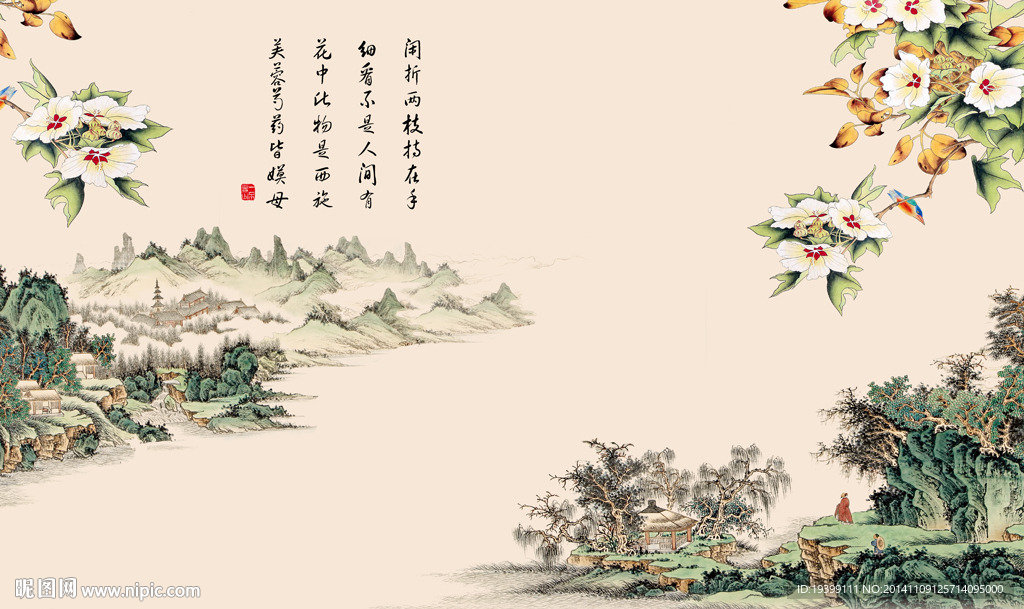 闲折两枝持在手
细看不是人间有
花中此物是西施
芙蓉芍药皆嫫母
昵图网 www.nipic.com
ID:19399111 NO:20141109125714095000